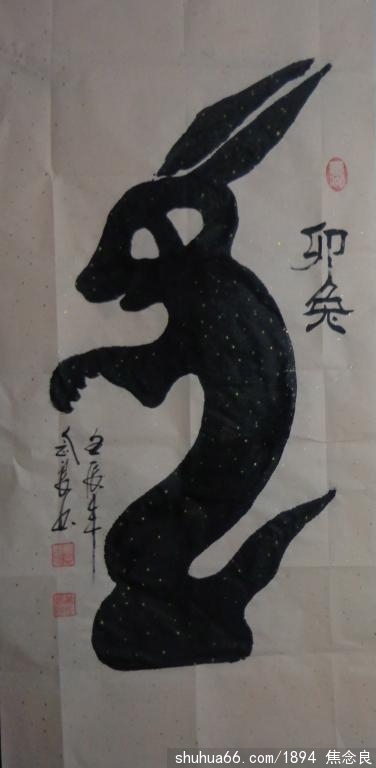 卯兔
壬辰年
念良书
shuhua66.com/1894 焦念良